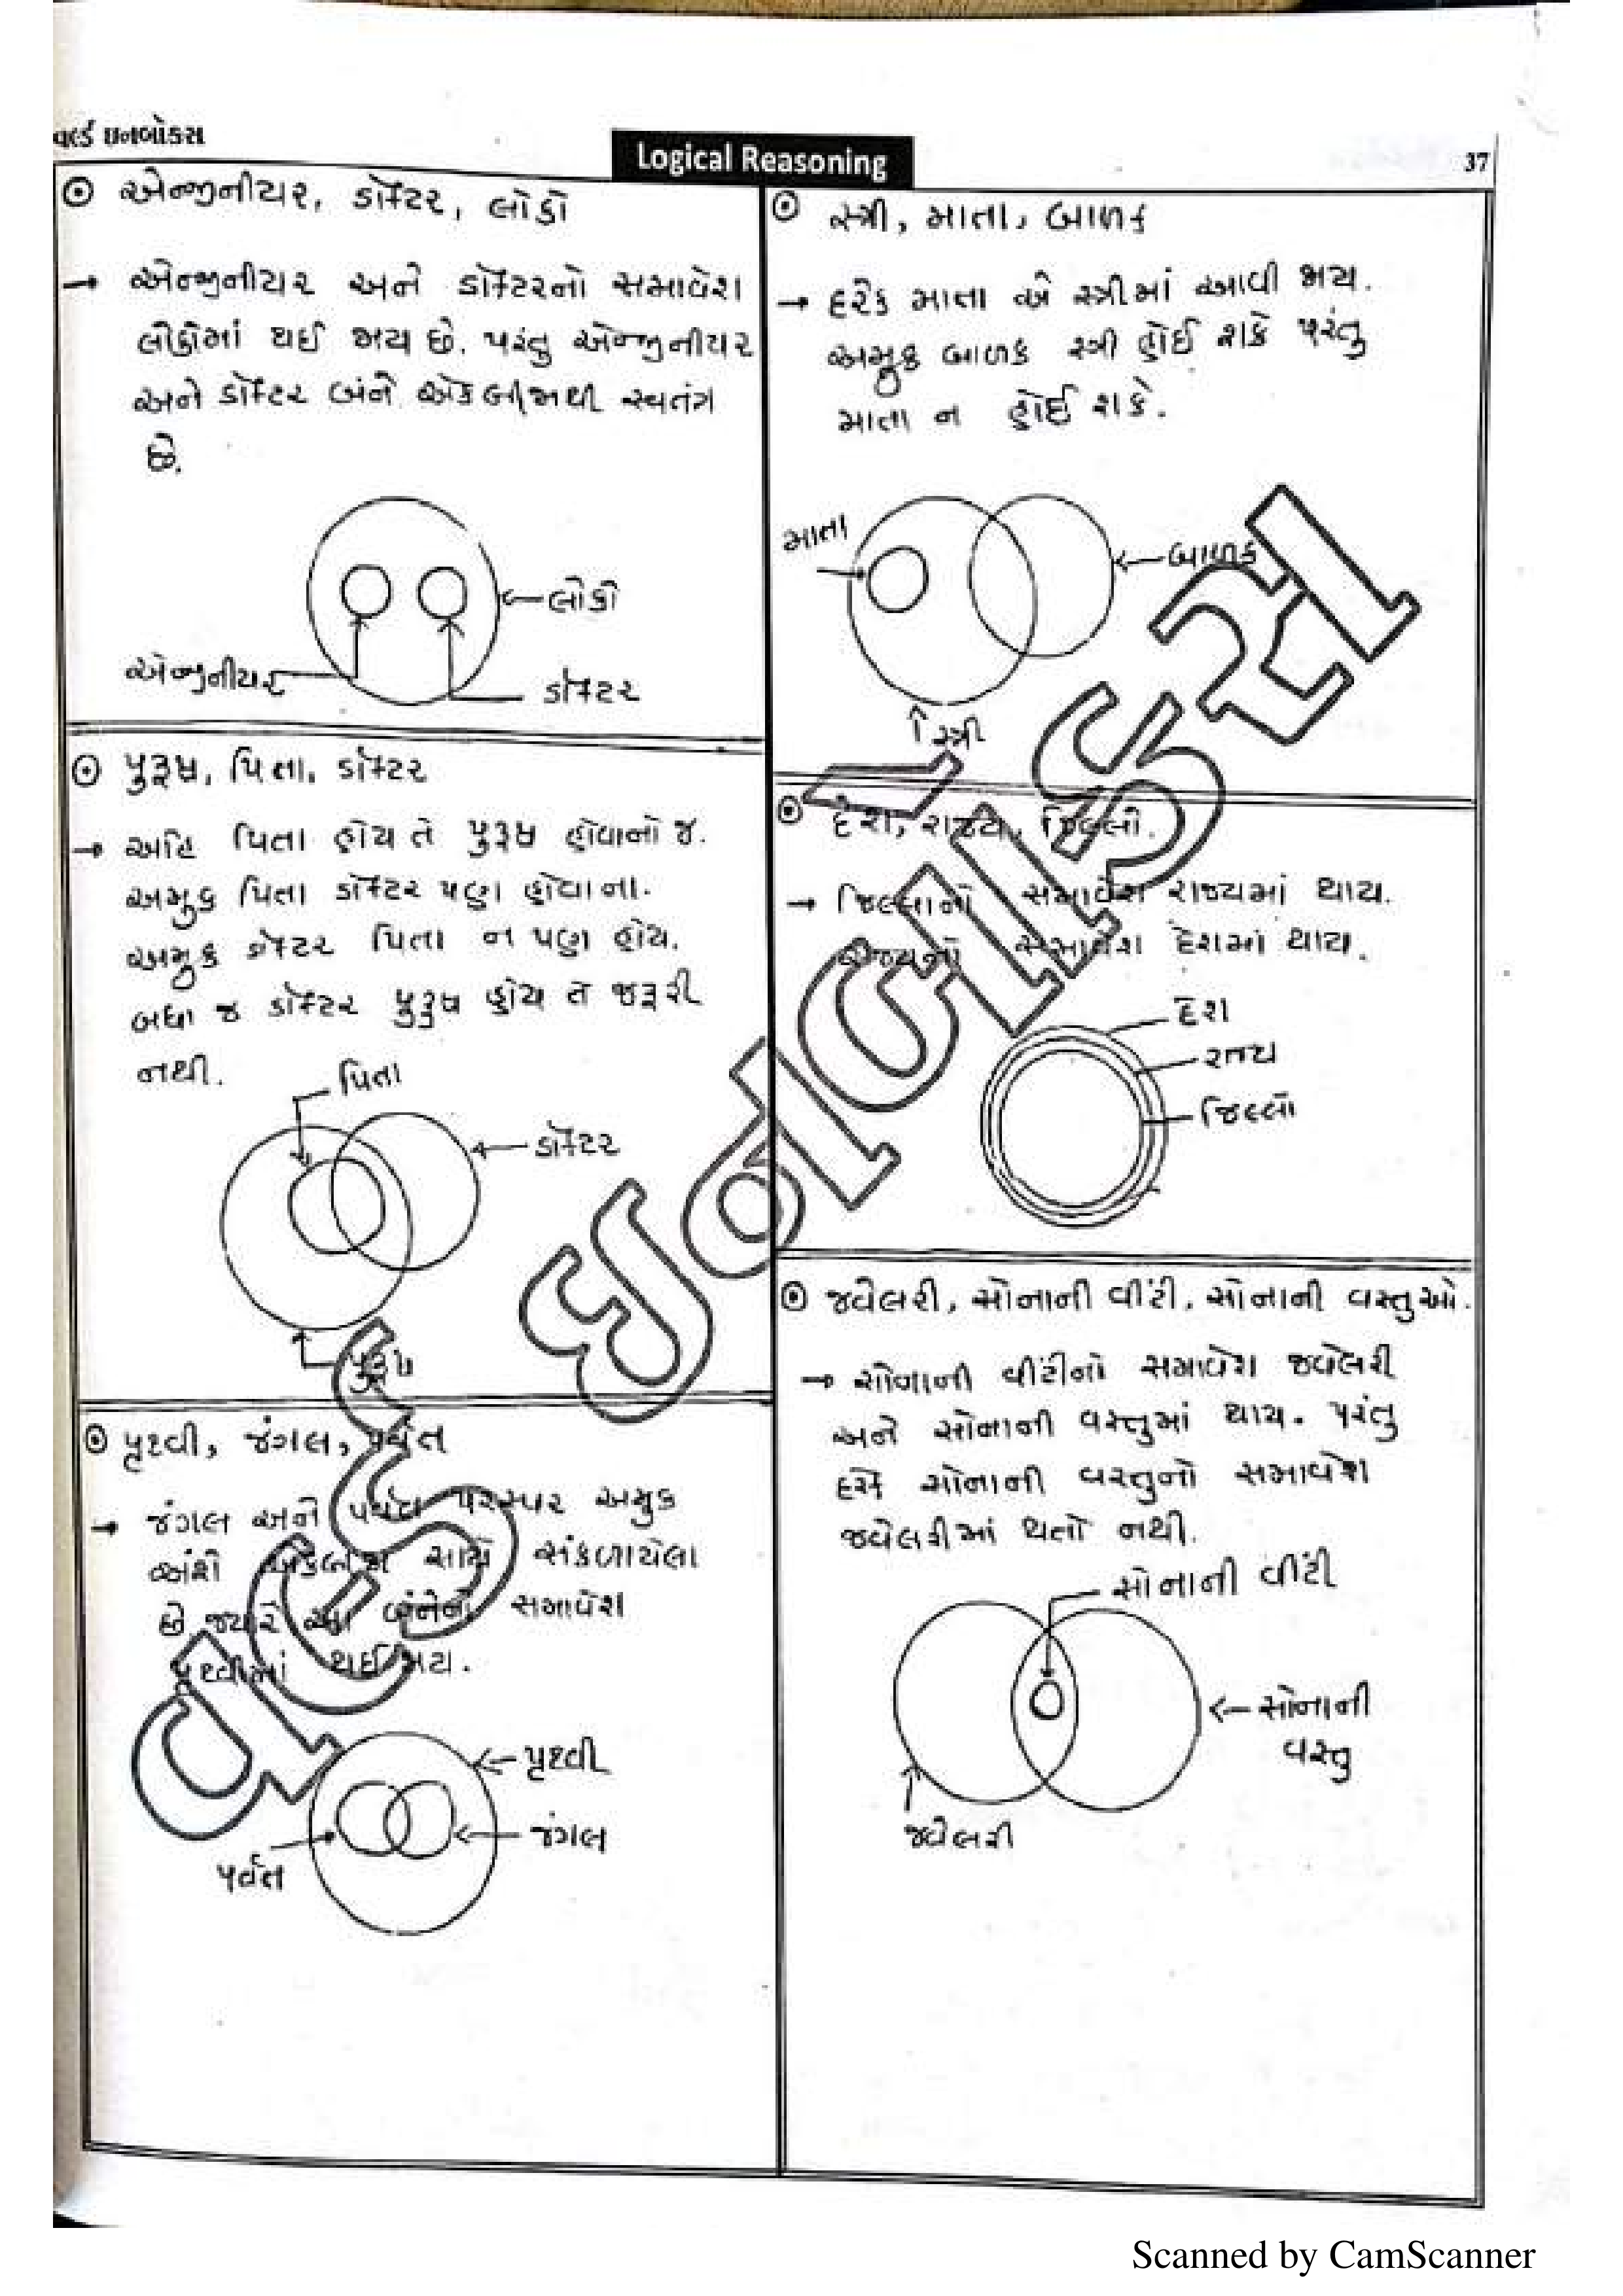 વર્લ્ડ ઇનબોક્સ
Logical Reasoning
37
એન્જીનીયર, ડૉક્ટર, લોકો
→ એન્જીનીયર અને ડૉક્ટરનો સમાવેશ
લોકોમાં થઈ જાય છે. પરંતુ એન્જીનીયર
અને ડૉક્ટર બંને એકબીજાથી સ્વતંત્ર
છે.
લોકો
એન્જીનીયર
ડૉક્ટર
પુરૂષ, પિતા, ડૉક્ટર
→ અહિ પિતા હોય તે પુરૂષ હોવાનો જ.
અમુક પિતા ડૉક્ટર પણ હોવાના.
અમુક ડૉક્ટર પિતા ન પણ હોય.
બધા જ ડૉક્ટર પુરુષ હોય તે જરૂરી
નથી.
પિતા
ડૉક્ટર
પુરૂષ
પૃથ્વી, જંગલ, પર્વત
→ જંગલ અને પર્વત પરસ્પર અમુક
અંશે એકબીજા સાથે સંકળાયેલા
છે જ્યારે આ બંનેનો સમાવેશ
પૃથ્વીમાં થઈ જાય.
પૃથ્વી
જંગલ
પર્વત
સ્ત્રી, માતા, બાળક
→ દરેક માતા એ સ્ત્રીમાં આવી જાય.
અમુક બાળક સ્ત્રી હોઈ શકે પરંતુ
માતા ન હોઈ શકે.
માતા
બાળક
સ્ત્રી
દેશ, રાજ્ય, જિલ્લો.
→ જિલ્લાનો સમાવેશ રાજ્યમાં થાય.
રાજ્યનો સમાવેશ દેશમાં થાય.
દેશ
રાજ્ય
જિલ્લો
જવેલરી, સોનાની વીંટી, સોનાની વસ્તુઓ.
→ સોનાની વીંટીનો સમાવેશ જવેલરી
અને સોનાની વસ્તુમાં થાય. પરંતુ
દરેક સોનાની વસ્તુનો સમાવેશ
જવેલરીમાં થતો નથી.
સોનાની વીંટી
સોનાની
વસ્તુ
જવેલરી
Scanned by CamScanner